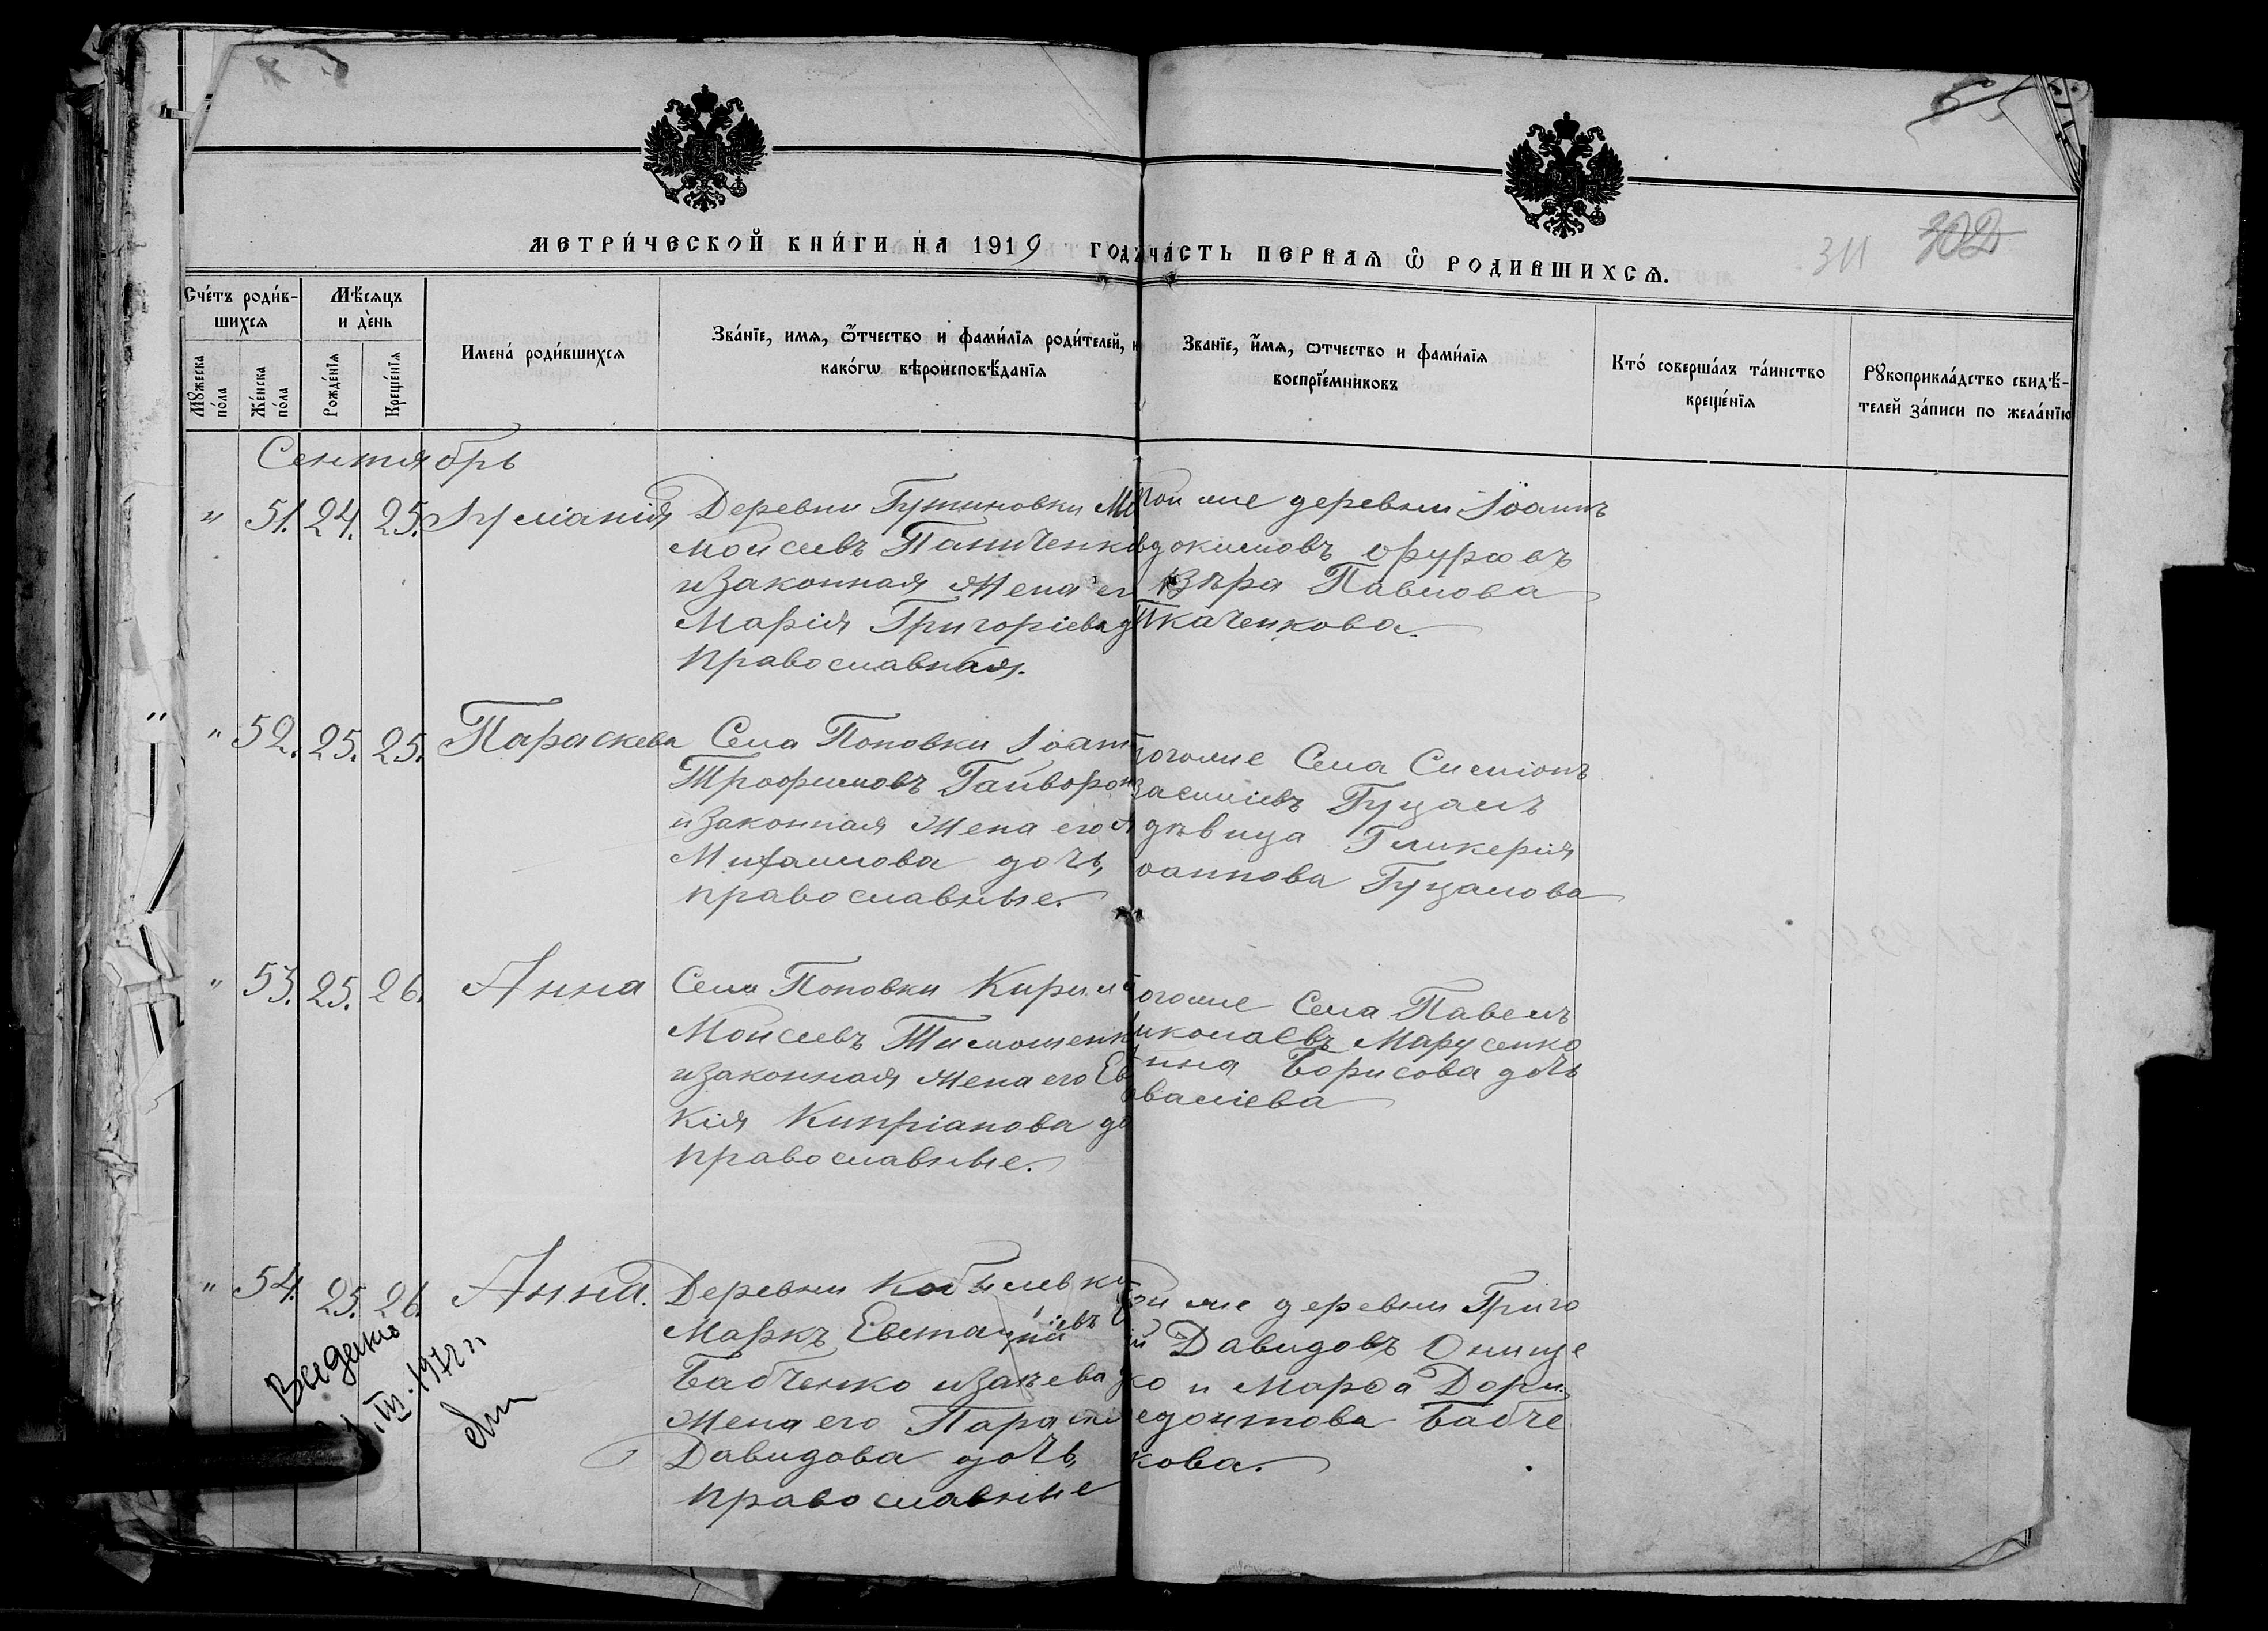 МЕТРИ́ЧЕСКОЙ КНИ́ГИ НА 1919 ГОДЪ ЧА́СТЬ ПЕРВАЯ Ѡ РОДИВШИХСЯ.
311 302
Сче́тъ роди́в-
шихся
Мѣ́сяцъ
и де́нь
Мꙋжеска
по́ла
Же́нска
по́ла
Рожде́нїя
Креще́нїя
Имена́ роди́вшихся
Зва́нїе, имя, ѿтчество и фами́лїя роди́телей, и
како́гѡ вѣроисповѣ́данїя
Званїе, и́мя, ѿтчество и фами́лїя
воспрїе́мниковъ
Кто́ соверша́лъ та́инство
креще́нїя
Рꙋкоприкла́дство свидѣ́-
телей за́писи по жела́нїю
Сентябрь
" 51. 24. 25. Іуліанія
Деревни Гутиновки
Моисеевъ Паниченко
и законная жена ег
Марія Григоріева д
православная.
Той же деревни Іоаннъ
вдокимовъ
Вѣра Павлова
Ткаченкова.
" 52. 25. 25. Параскева
Села Поповки Іоан
Трофимовъ Гайворон
и законная жена его
Михаилова дочь,
православные.
того же Села Симіонъ
Василіевъ Гуцалъ
дѣвица Гликерія
Іоаннова Гуцалова
" 53. 25. 26. Анна
Села Поповки Кирил
Моисеевъ Тимошенк
и законная жена его Ев
кія Кипріанова до
православные.
того же Села Павелъ
Николаевъ Марусенко
Анна Борисова дочь
" 54. 25. 26. Анна.
Деревни Кобылевки
Маркъ Евстафіевъ
Бабченко и законная
жена его Параске
Давидова дочь,
православные
Той же деревни Григо
ій Давидовъ Онище
ко и Марѳа Дори
едонтова Бабче
кова.
Выдано
III. 1972 г.